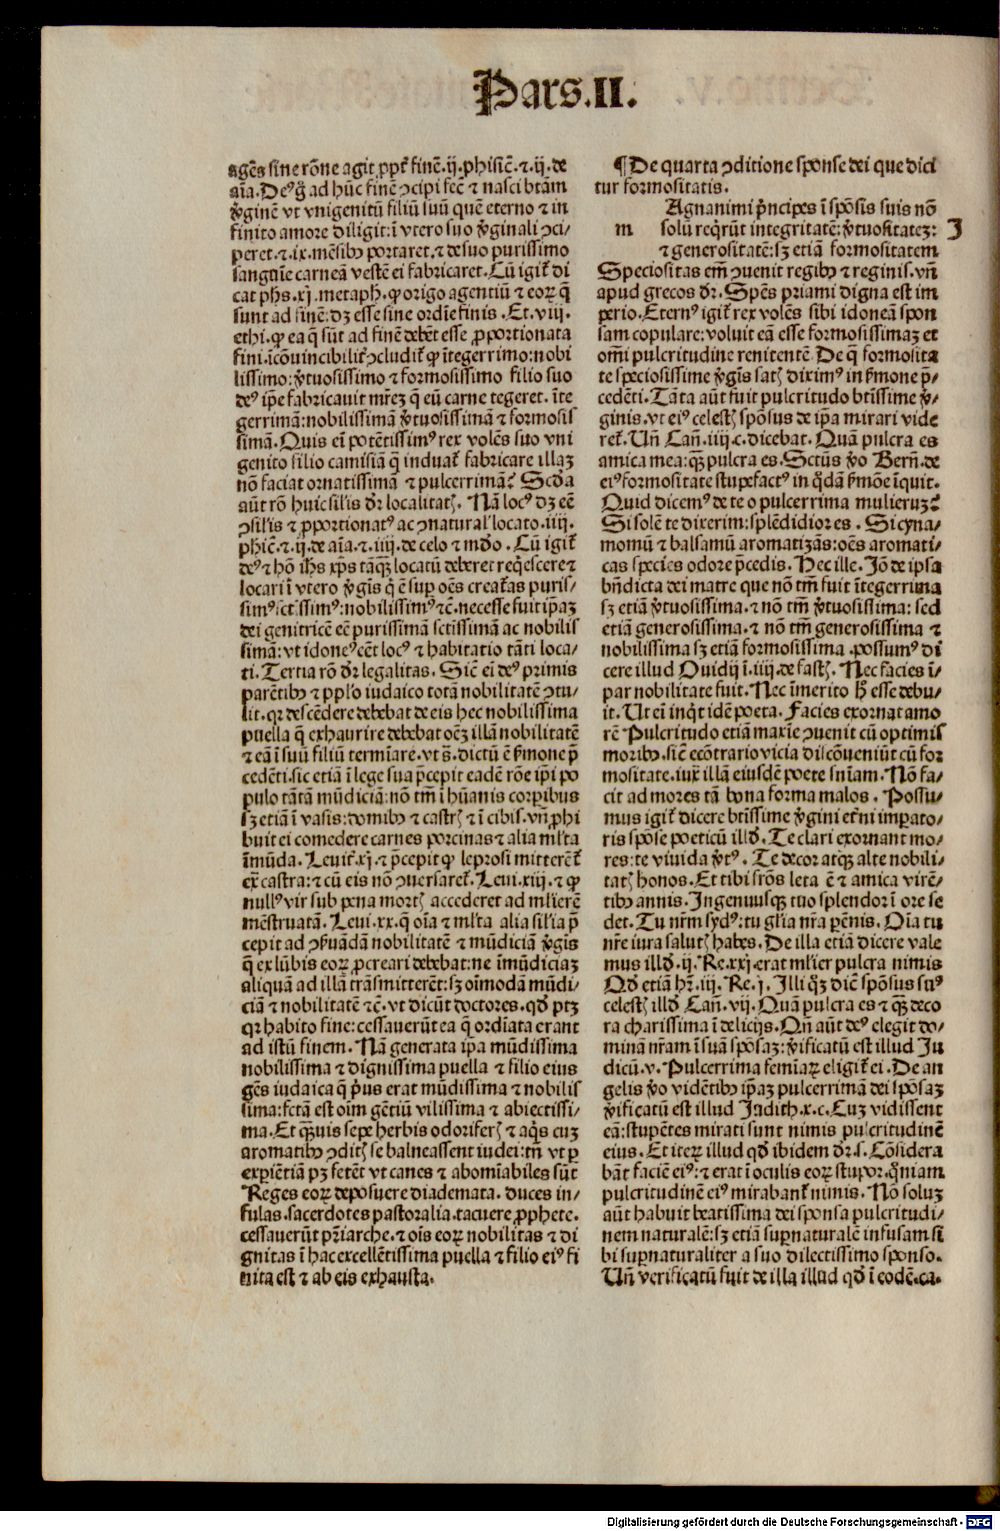 Pars.II.
agẽs sine rõne agit ꝓpt̃ finẽ.ij.phisic̃.⁊.ij.de
aĩa.Deꝰ g̃ ad hũc finẽ ↄcipi fec̃ ⁊ nasci btãm
v̓ginẽ vt vnigenitũ filiũ suũ quẽ eterno ⁊ in
finito amore diligit:ĩ vtero suo v̓ginali ↄci⸗
peret.⁊.ix.mẽsibꝫ portaret.⁊ de suo purissimo
sanguĩe carneã vestẽ ei fabricaret.Cũ igit̃ di
cat phs.xij.metaph.ꝙ origo agentiũ ⁊ eoꝝ q̃
sunt ad finẽ:dꝫ esse sine ordĩe finis.Et.viij.
ethi.ꝙ ea q̃ sũt ad finẽ debẽt esse ꝓportionata
fini.ĩcõuincibilit̃ ↄcludit̃ ꝙ ĩtegerrimo:nobi
lissimo:v̓tuosissimo ⁊ formosissimo filio suo
deꝰ ip̃e fabricauit mr̃eꝫ q̃ eũ carne tegeret.ĩte
gerrimã:nobilissimã v̓tuosissimã ⁊ formosis
simã.Quis em̃ potẽtissimꝰ rex volẽs suo vni
genito filio camisiã q̃ induat̃ fabricare illaꝫ
nõ faciat ornatissimã ⁊ pulcerrimã? Scd̃a
aũt rõ huic sil̃is dr̃ localitatꝭ. Nã locꝰ dꝫ eẽ
ↄsil̃is ⁊ ꝓportionatꝰ ac ↄnatural̓ locato.iiij.
phic̃.⁊.ij.de aĩa.⁊.iiij.de celo ⁊ mũdo.Cũ igit̃
deꝰ ⁊ hõ ih̃s xp̃s tãq̃ꝫ locatũ deberet req̓escere ⁊
locari ĩ vtero v̓gĩs q̓ ẽ suꝑ oẽs creat̃as puris⸗
simꝰ:sctissimꝰ:nobilissimꝰ ⁊c̃.necesse fuit ip̃aꝫ
dei genitricẽ eẽ purissimã sctissimã ac nobilis
simã:vt idoneꝰ eẽt locꝰ ⁊ habitatio tãti loca⸗
ti.Tertia rõ dr̃ legalitas.Sic̃ em̃ deꝰ primis
parẽtibꝫ ⁊ ppl̓o iudaico totã nobilitatẽ ↄtu⸗
lit.qꝛ descẽdere debebat de eis hec nobilissima
puella q̃ exhaurire debebat oẽꝫ illã nobilitatẽ
⁊ eã ĩ suũ filiũ termĩare.vt s̃.dictũ ẽ s̃mone p̃
cedẽti.sic etiã ĩ lege sua p̃cepit eadẽ rõe ip̃i po
pulo tãtã mũdiciã:nõ tm̃ ĩ hũanis corꝑibus
sꝫ etiã ĩ vasis:domibꝫ ⁊ castrꝭ ⁊ ĩ cibis.vñ ꝓhi
buit ei comedere carnes porcinas ⁊ alia ml̓ta
ĩmũda. Leuit̃.xj.⁊ p̃cepit ꝙ leprosi mitterẽt̃
ex̃ castra:⁊ cũ eis nõ ↄuersaret̃.Leui.xiij.⁊ ꝙ
nullꝰ vir sub pena mortꝭ accederet ad ml̓ierẽ
mẽstruatã. Leui.xx.q̃ oĩa ⁊ ml̓ta alia sil̓ia p̃
cepit ad ↄẜuãdã nobilitatẽ ⁊ mũdiciã v̓gĩs
q̃ ex lũbis eoꝝ ꝓcreari debebat:ne ĩmũdiciaꝫ
aliquã ad illã trãsmitterẽt:sꝫ oĩmodã mũdi⸗
ciã ⁊ nobilitatẽ ⁊c̃.vt dicũt doctores.qd̓ ptꝫ
qꝛ habito fine:cessauerũt ea q̃ ordĩata erant
ad istũ finem. Nã generata ip̃a mũdissima
nobilissima ⁊ dignissima puella ⁊ filio eius
gẽs iudaica q̃ pͥus erat mũdissima ⁊ nobilis
sima:fctã est oĩm gẽtiũ vilissima ⁊ abiectissi⸗
ma.Et q̃ꝫuis sepe herbis odoriferꝭ ⁊ aq̓s cuꝫ
aromatibꝫ ↄditꝭ se balneassent iudei:tñ vt ꝑ
experiẽtiã pꝫ fetẽt vt canes ⁊ abomĩabiles sũt
Reges eoꝝ deposuere diademata. duces in⸗
fulas.sacerdotes pastoralia.tacuere ꝓphete.
cessauerũt pr̃iarche.⁊ oĩs eoꝝ nobilitas ⁊ di
gnitas ĩ hac excellẽtissima puella ⁊ filio eiꝰ fi
nita est ⁊ ab eis exhausta.
¶De quarta ↄditione sponse dei que dici
tur formositatis.
Agnanimi pͥncipes ĩ spõsis suis nõ
m solũ req̓rũt integritatẽ:v̓tuositateꝫ: J
⁊ generositatẽ:sꝫ etiã formositatem
Speciositas em̃ ↄuenit regibꝫ ⁊ reginis.vñ
apud grecos dr̃.Spẽs priami digna est im
perio.Eternꝰ igit̃ rex volẽs sibi idoneã spon
sam copulare:voluit eã esse formosissimaꝫ et
om̃i pulcritudine renitentẽ De q̃ formosita
te speciosissime v̓gĩs satꝭ diximꝰ in s̃mone p̃⸗
cedẽti.Tãta aũt fuit pulcritudo btĩssime v̓⸗
ginis.vt eiꝰ celestꝭ spõsus de ip̃a mirari vide
ret̃.Uñ Cañ.iiij.c.dicebat.Quã pulcra es
amica mea:q̃ꝫ pulcra es.Sctũs v̓o Berñ.de
eiꝰ formositate stupefactꝰ in q̓dã s̃mõe ĩquit.
Quid dicemꝰ de te o pulcerrima mulieruꝫ?
Si solẽ te dixerim:splẽdidior es. Si cyna⸗
momũ ⁊ balsamũ aromatizãs:oẽs aromati⸗
cas species odore p̃cedis.Hec ille.Iõ de ipsa
bñdicta dei matre que nõ tm̃ fuit ĩtegerrima
sꝫ etiã v̓tuosissima.⁊ nõ tm̃ v̓tuosissima: sed
etiã generosissima.⁊ nõ tm̃ generosissima ⁊
nobilissima sꝫ etiã formosissima.possumꝰ di
cere illud Ouidij ĩ.iiij.de fastꝭ. Nec facies ĩ⸗
par nobilitate fuit.Nec ĩmerito h̓ esse debu⸗
it.Ut em̃ inq̓t idẽ poeta.Facies exornat amo
rẽ Pulcritudo etiã maxĩe ↄuenit cũ optimis
moribꝫ.sic̃ ecõtrario vicia discõueniũt cũ for
mositate.iux̃ illã eiusdẽ poete sñiam. Nõ fa⸗
cit ad mores tã bona forma malos. Possu⸗
mus igit̃ dicere btĩssime v̓gini et̃ni imperato⸗
ris spõse poeticũ illd̓. Te clari exornant mo⸗
res:te viuida v̓tꝰ. Te decor atq̃ꝫ alte nobili⸗
tatꝭ honos.Et tibi frõs leta ẽ ⁊ amica virẽ⸗
tibꝫ annis.Ingenuusqꝫ tuo splendor ĩ ore se
det.Tu nr̃m sydꝰ:tu gl̓ia nr̃a ꝑẽnis.Oĩa tu
nr̃e iura salutꝭ habes.De illa etiã dicere vale
mus illd̓.ij.Re.xxj.erat ml̓ier pulcra nimis
Qd̓ etiã hr̃.iij.Re.j.Illi q̓ꝫ dic̃ spõsus suꝰ
celestꝭ illd̓ Cañ.vij.Quã pulcra es ⁊ q̃ꝫ deco
ra charissima ĩ delicijs.Qñ aũt deꝰ elegit do⸗
minã nr̃am ĩ suã spõsaꝫ:v̓ificatũ est illud Ju
dicũ.v.Pulcerrima femĩaꝝ eligit̃ ei.De an
gelis v̓o vidẽtibꝫ ip̃aꝫ pulcerrimã dei spõsaꝫ
v̓ificatũ est illud Judith.x.c.Cuꝫ vidissent
eã:stupẽtes mirati sunt nimis pulcritudinẽ
eius.Et iteꝝ illud qd̓ ibidem dr̃.s.Cõsidera
bãt faciẽ eiꝰ:⁊ erat ĩ oculis eoꝝ stupor.qm̃iam
pulcritudinẽ eiꝰ mirabant̃ nimis. Nõ soluꝫ
aũt habuit beatissima dei sponsa pulcritudi⸗
nem naturalẽ:sꝫ etiã suꝑnaturalẽ infusam si
bi suꝑnaturaliter a suo dilectissimo sponso.
Uñ verificatũ fuit de illa illud qd̓ ĩ eodẽ.ca.
Digitalisierung gefördert durch die Deutsche Forschungsgemeinschaft - DFG